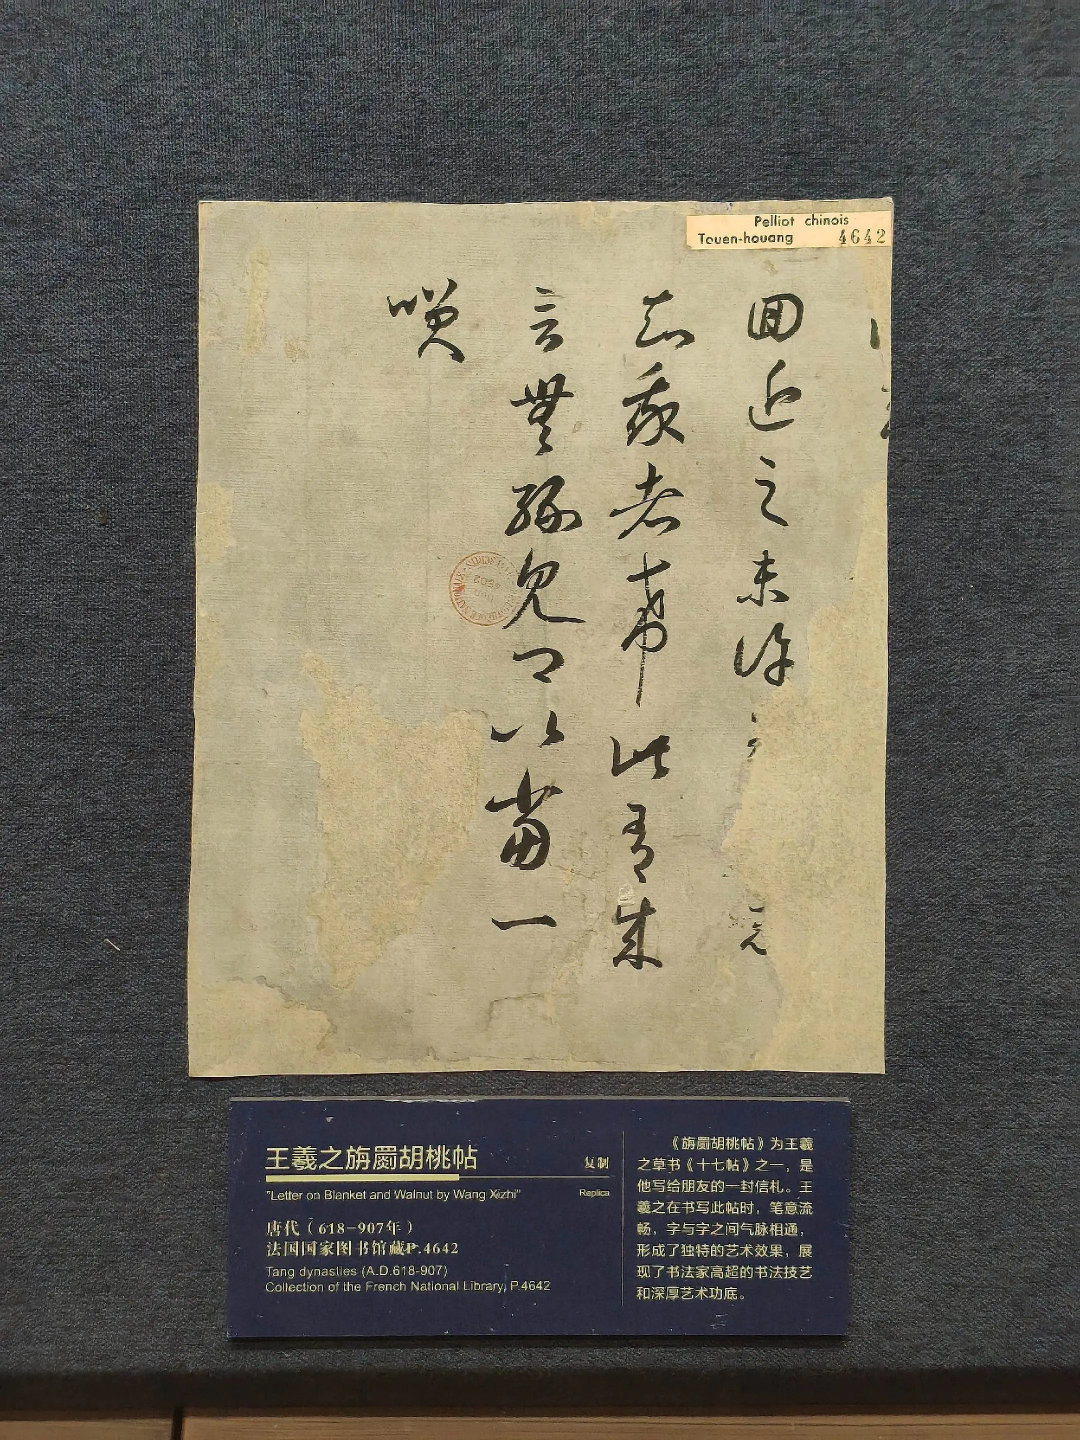 Pelliot chinois
Touen-houang 4642
囬近之未許
知我者希此有成
言無緣見卿以當一
咲
王羲之旃罽胡桃帖
复制
"Letter on Blanket and Walnut by Wang Xizhi"
Replica
唐代（618-907年）
法国国家图书馆藏P.4642
Tang dynasties (A.D.618-907)
Collection of the French National Library, P.4642
《旃罽胡桃帖》为王羲
之草书《十七帖》之一，是
他写给朋友的一封信札。王
羲之在书写此帖时，笔意流
畅，字与字之间气脉相通，
形成了独特的艺术效果，展
现了书法家高超的书法技艺
和深厚艺术功底。